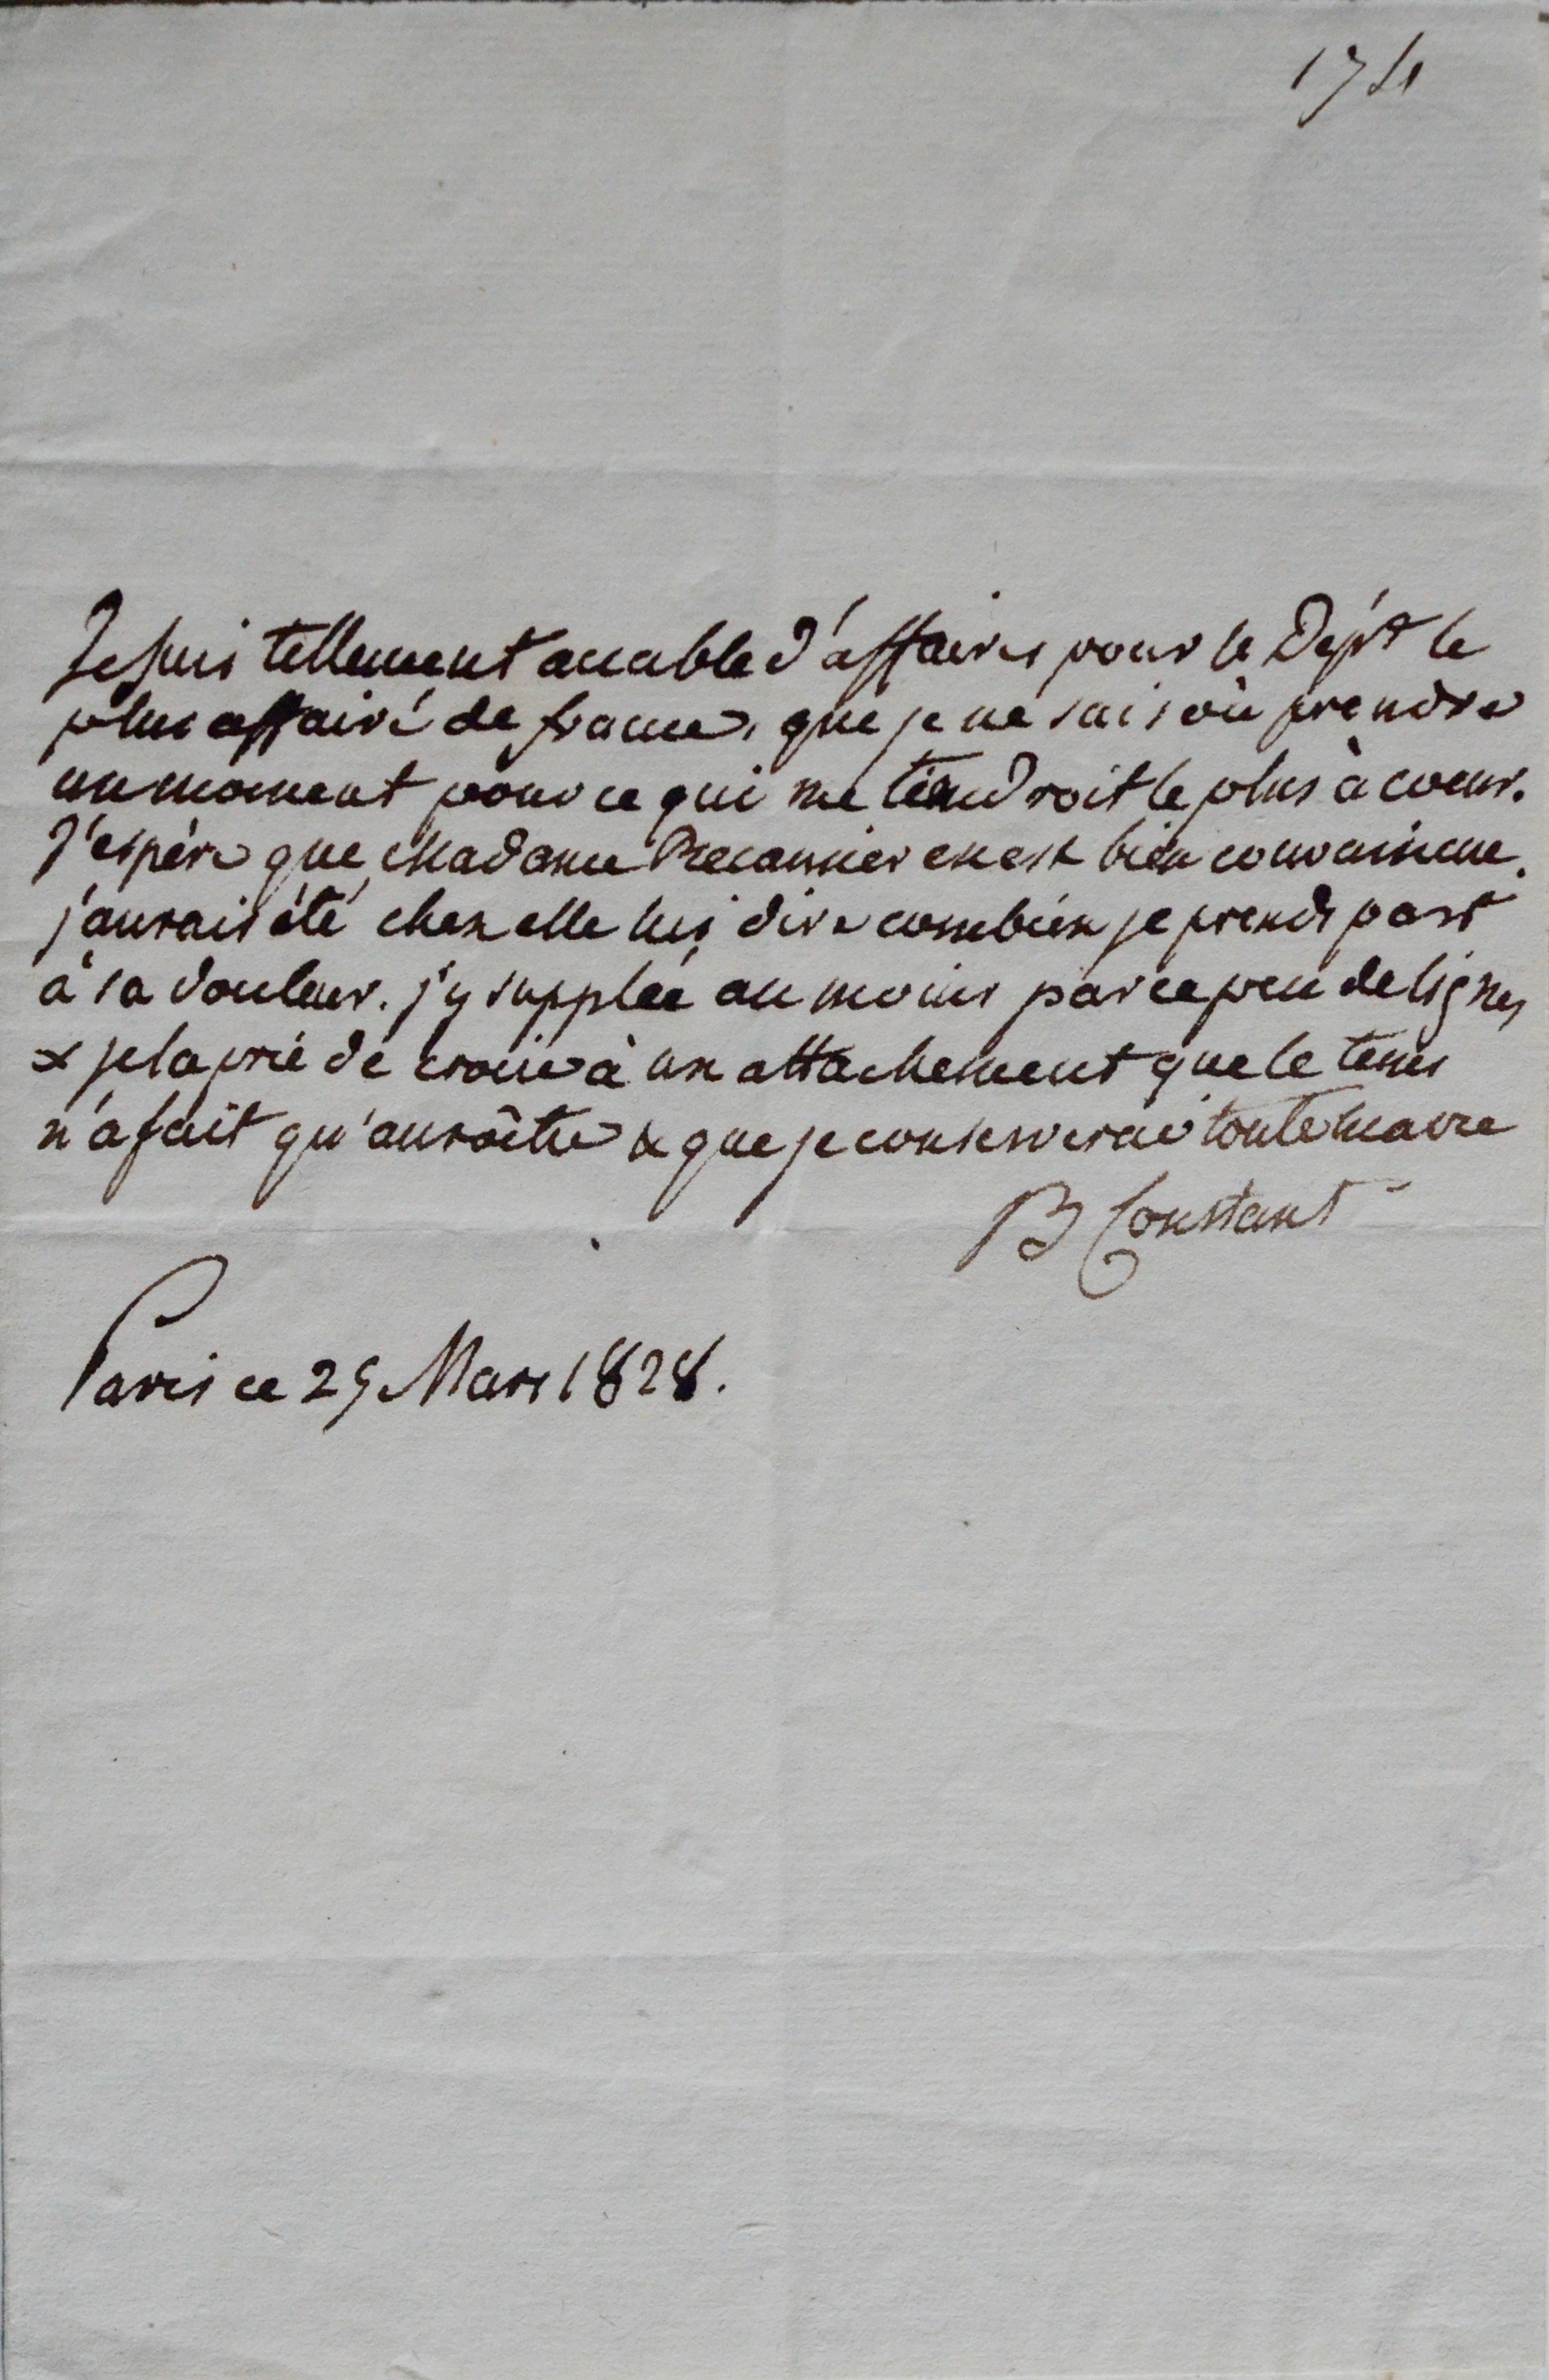 174
Je suis tellement accablé d'affaires pour le Dép't le
plus affairé de france, que je ne sais où prendre
un moment pour ce qui me tiendroit le plus à coeur.
J'espère que Madame Recamier en est bien convaincue.
j'aurais été chez elle lui dire combien je prends part
à sa douleur. j'y supplée au moins par ce peu de lignes
& je la prie de croire à un attachement que le tems
n'a fait qu'accroître & que je conserverai toute ma vie
B Constant
Paris ce 29 Mars 1828.